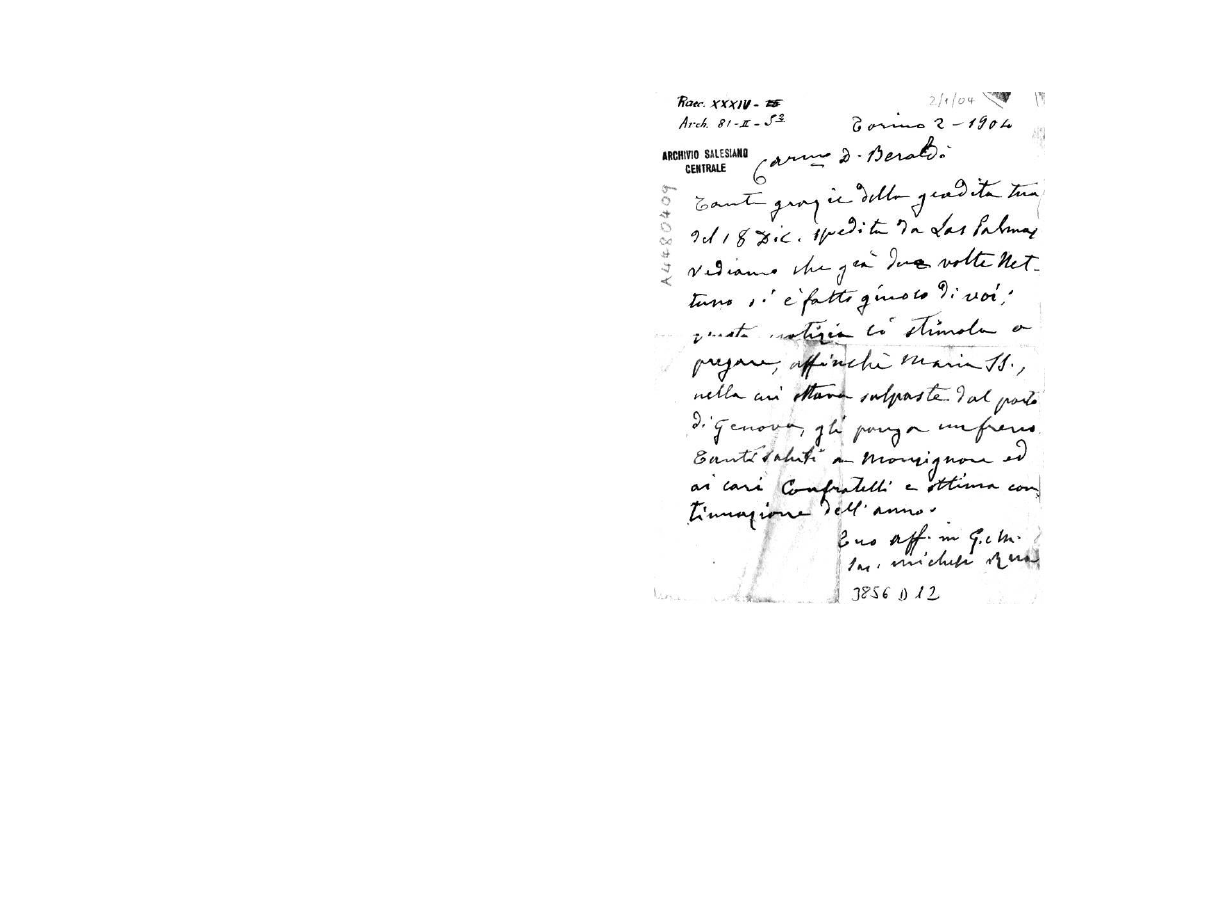 Racc. XXXIV -
2/1/04
Arch. 81-II-S3º
Torino 2-1904
ARCHIVIO SALESIANO
CENTRALE
Carmo D. Beraldi
A4480409
Tante grazie della gradita tua
del 18 Dic. spedita da Las Palmas
vediamo che già due volte Net-
tuno si è fatto giuoco di voi;
questa notizia ci stimola a
pregare, affinchè Maria SS.,
nella cui ottava salpaste dal porto
di Genova, gli ponga un freno
Tanti saluti a Monsignore ed
ai cari Confratelli e ottima con
tinuazione dell'anno.
Tuo aff. in G. e M.
Sac. Michele Rua
3856 D 12